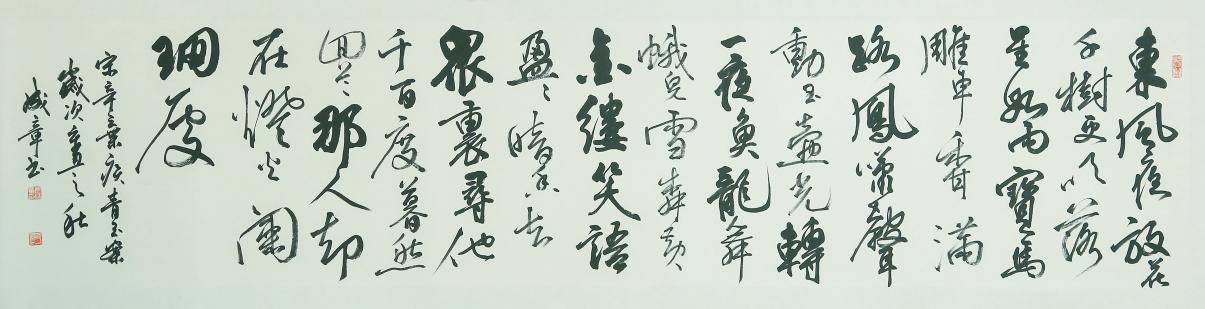 東風夜放花
千樹更吹落
星如雨寶馬
雕車香滿
路鳳簫聲
動玉壺光轉
一夜魚龍舞
蛾兒雪柳黃
金縷笑語
盈〻暗香去
眾裏尋他
千百度暮然
回首那人却
在燈火闌
珊處
宋辛棄疾青玉案
歲次辛丑之秋
成章书